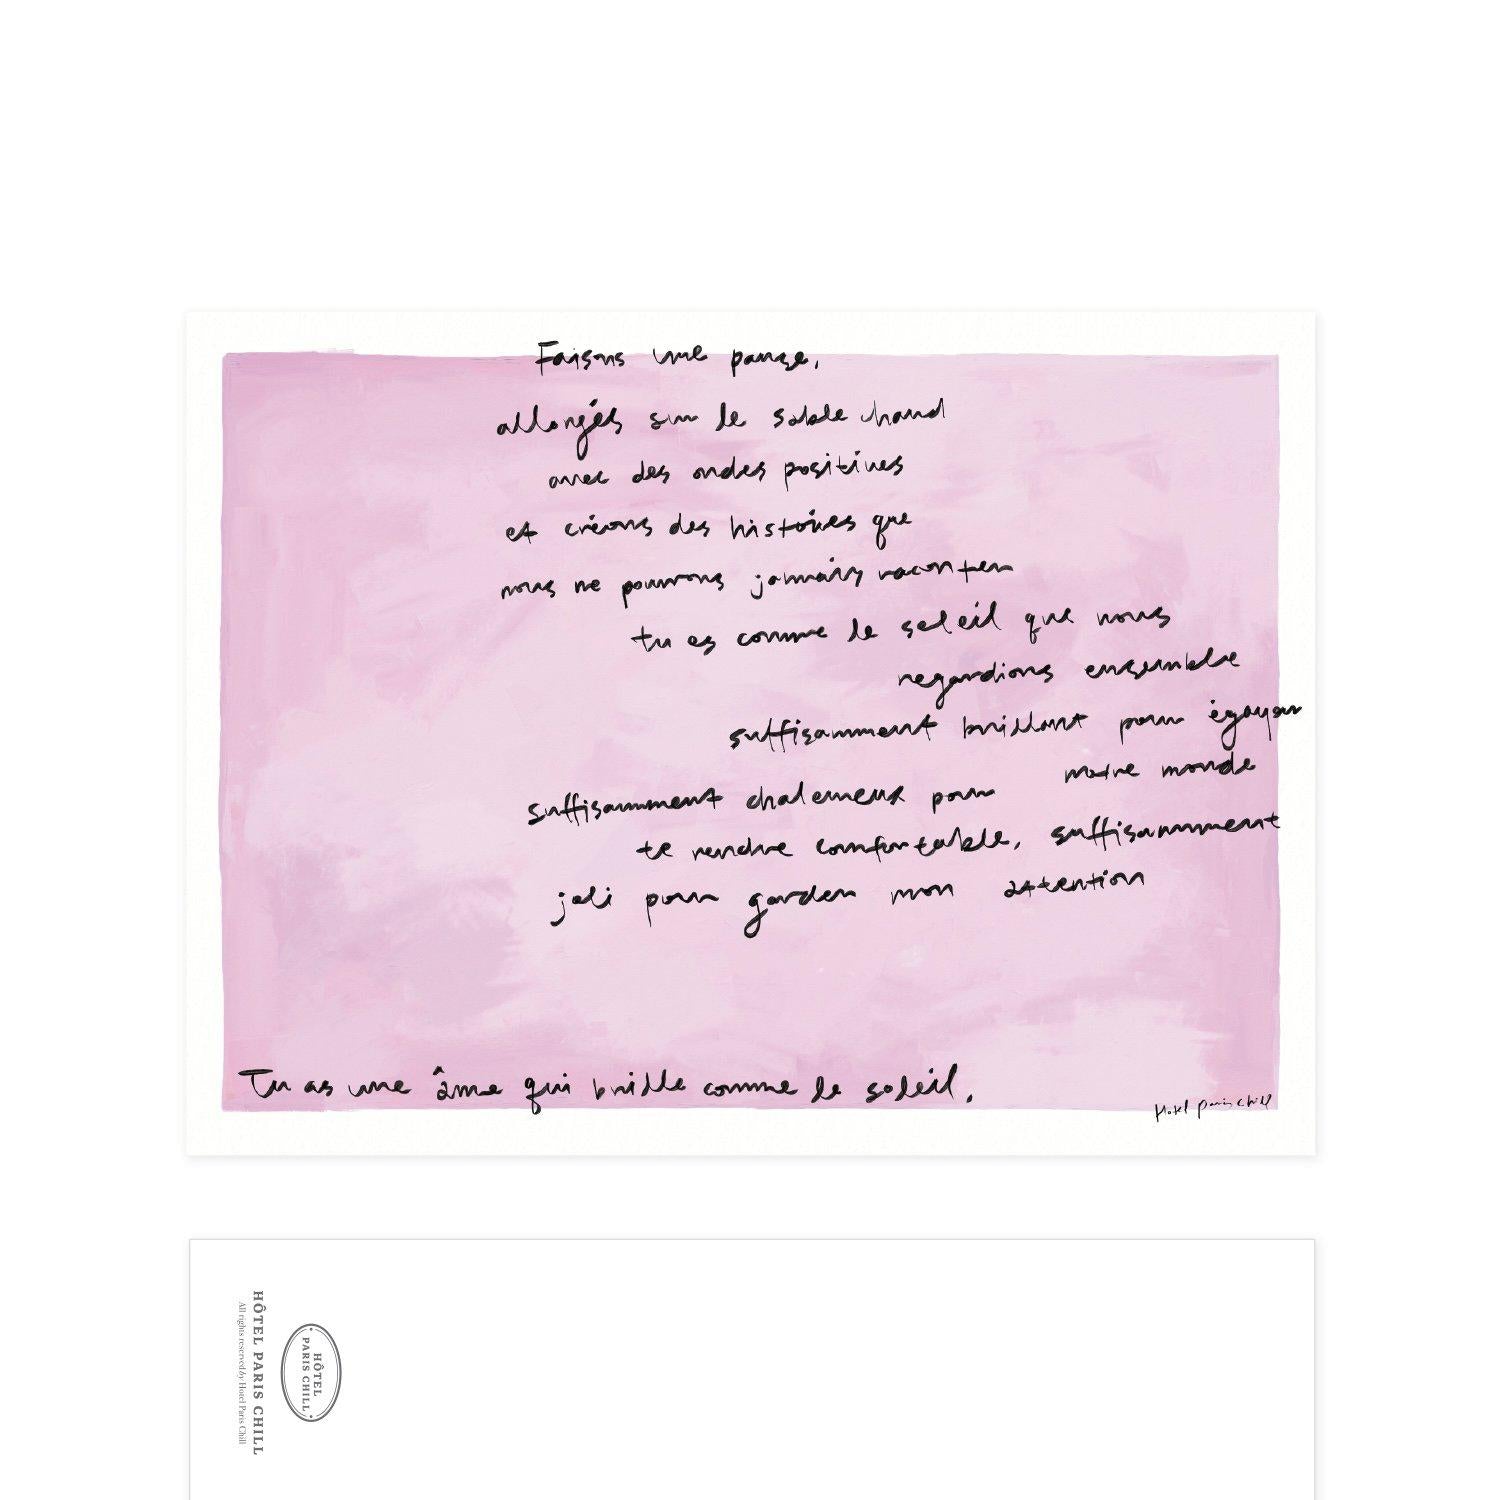 Faisons une pause,
allongés sur le sable chaud
avec des ondes positives
et créons des histoires que
nous ne pourrons jamais raconter
tu es comme le soleil que nous
regardions ensemble
suffisamment brillant pour égayer
notre monde
suffisamment chaleureux pour
te rendre confortable, suffisamment
joli pour garder mon attention
Tu as une âme qui brille comme le soleil.
Hotel Paris Chill
HÔTEL
PARIS CHILL
HÔTEL PARIS CHILL
All rights reserved by Hotel Paris Chill